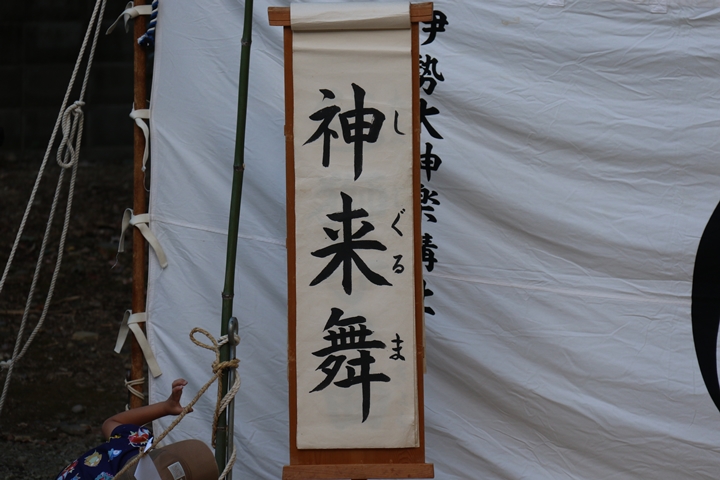 伊勢大神楽講社
神来舞
しぐるま